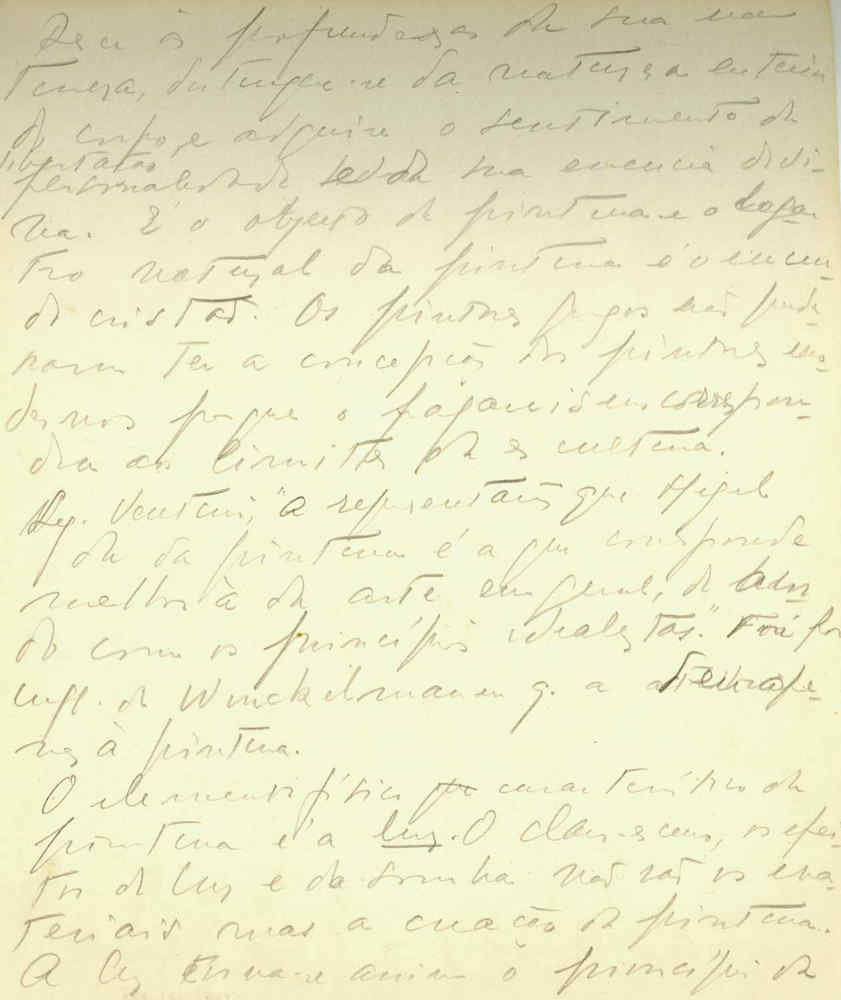 Desce ás profundezas da sua na
tureza, distingue-se da natureza exterior
do corpo, e adquire o sentimento da
libertação
personalidade e da sua essencia divi-
na. É o objecto da pintura e o
centro natural da pintura é o mun-
do cristão. Os pintores gregos não pude-
ram ter a concepção dos pintores mo-
dernos porque o paganismo correspon-
dia aos limites da s/ cultura.
Seg. Venturi, "a representação que Hegel
dá da pintura é a que corresponde
melhor à da arte em geral, de acor
do com os princípios idealistas." Foi por
infl. de Winckelmann q. a
à pintura.
O elemento físico característico da
pintura é a luz. O claro-escuro, os efei-
tos de luz e da sombra não são os ma-
teriais mas a creação da pintura.
A luz torna-se assim o princípio da